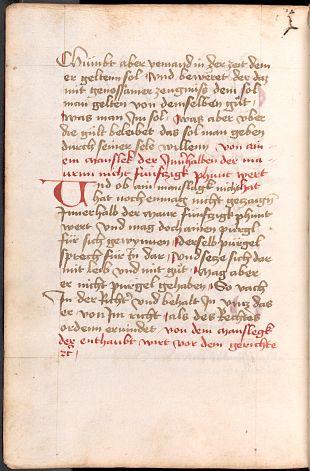 Chumbt aber yemand in der zeit dem
er gelten sol / Vnd beweret der daz
mit genossamer zeugnuss dem sol
man gelten von demselben gut /
was man Im sol / waz aber vber
die gült beleibet das sol man geben
durch seiner sele willenn / von ain
em manslek der Innhalben der ma
urnn nicht funfzigk phunt wert
Vnd ob ain manslegk nicht hat
hat noch enmag nicht gezaign
Innerhalb der maur funfzigk phunt
wert Vnd mag doch ainen purgl
für sich gewynnen / Derselb purgel
sprech für In dar / Vnd secze sich dar
mit leib vnd mit gut / Mag aber
er nicht purgel gehaben / So vach
In der Richter vnd behalt In vncz das
er von Im richt / als des Rechtes
ordenn erfindet von dem manslegk
der enthaubt wirt vor dem gerichte